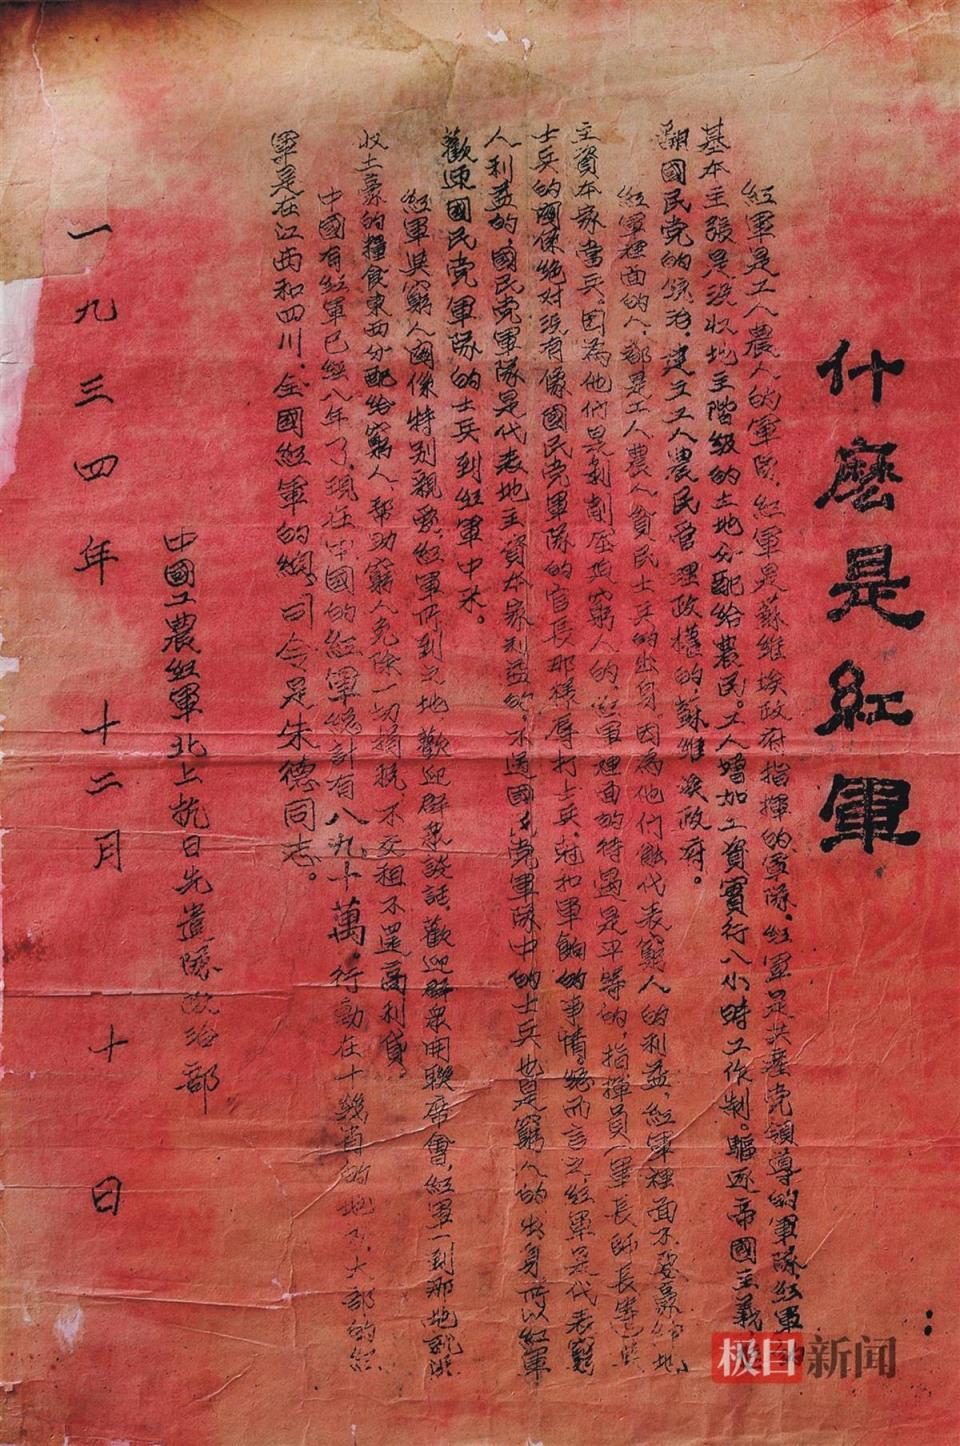 什麽是紅軍
紅軍是工人農人的軍隊,紅軍是蘇維埃政府指揮的軍隊,紅軍是共產党領導的軍隊,紅軍
基本主張是没收地主階級的土地分配給農民。工人增加工資實行八小時工作制。驅逐帝國主義
國民党的統治,建立工人農民管理政權的蘇維埃政府。
紅軍裡面的人,都是工人農人貧民士兵的出身,因為他们能代表窮人的利益,紅軍裡面不要豪紳地
主資本家當兵,因為他们是剝削壓迫窮人的,紅軍裡面的待遇是平等的,指揮員(軍長師長等)與
士兵的關係絶对没有像國民党軍隊的官長那様辱打士兵,尅扣軍餉的事情。總而言之,紅軍是代表窮
人利益的,國民党軍隊是代表地主資本家利益的,不過國民党軍隊中的士兵也是窮人的出身,所以紅軍
歡迎國民党軍隊的士兵到紅軍中来。
紅軍與窮人關係特别親愛,紅軍所到之地,歡迎群衆談話,歡迎群衆開聯席會,紅軍一到那地就没
收土豪的糧食東西分配給窮人,帮助窮人免除一切捐税,不交租不還高利貸。
中國有紅軍已經八年了,現在中國的紅軍總計有八九十萬,行動在十幾省的地方,大部的紅
軍是在江西和四川,全國紅軍的總司令是朱德同志。
中國工農紅軍北上抗日先遣隊政治部
一九三四年十二月十日
极目新闻